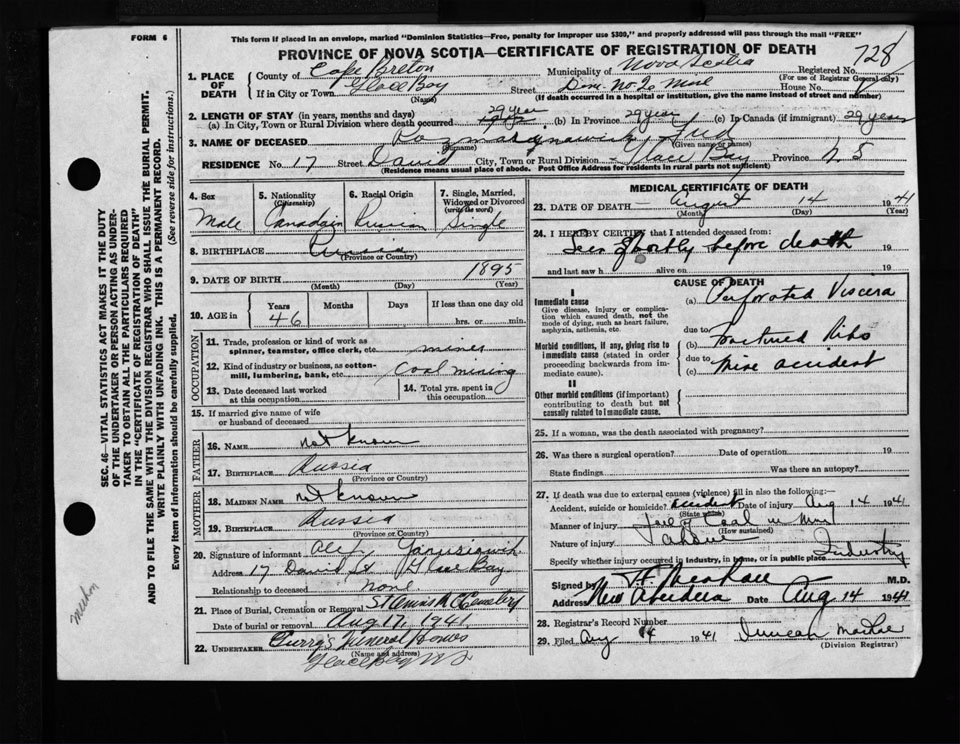 FORM 6
This form if placed in an envelope, marked "Dominion Statistics—Free, penalty for improper use $300," and properly addressed will pass through the mail "FREE"
PROVINCE OF NOVA SCOTIA—CERTIFICATE OF REGISTRATION OF DEATH
728
Registered No.
(For use of Registrar General only)
1. PLACE OF DEATH
County of Cape Breton Municipality of Nova Scotia
If in City or Town Glace Bay (Name) Street Dom. No 2 Mine House No.
(If death occurred in a hospital or institution, give the name instead of street and number)
2. LENGTH OF STAY (in years, months and days)
(a) In City, Town or Rural Division where death occurred 29 year (b) In Province 29 year (c) In Canada (if immigrant) 29 years
3. NAME OF DECEASED Fred
(Given name or names)
RESIDENCE No. 17 Street David City, Town or Rural Division Glace Bay Province N S
(Residence means usual place of abode. Post Office Address for residents in rural parts not sufficient)
4. Sex Male
5. Nationality (Citizenship) Canadain
6. Racial Origin Russian
7. Single, Married, Widowed or Divorced (write the word) Single
8. BIRTHPLACE Russia
(Province or Country)
9. DATE OF BIRTH 1895
(Month) (Day) (Year)
10. AGE in Years 46 Months Days If less than one day old hrs. or min.
OCCUPATION
11. Trade, profession or kind of work as spinner, teamster, office clerk, etc. miner
12. Kind of industry or business, as cotton-mill, lumbering, bank, etc. Coal mining
13. Date deceased last worked at this occupation
14. Total yrs. spent in this occupation
15. If married give name of wife or husband of deceased
FATHER
16. NAME not known
17. BIRTHPLACE Russia
(Province or Country)
MOTHER
18. MAIDEN NAME not known
19. BIRTHPLACE Russia
(Province or Country)
20. Signature of informant
Address 17 David St Glace Bay
Relationship to deceased none
21. Place of Burial, Cremation or Removal Cemetery
Date of burial or removal Aug 17, 1941
22. UNDERTAKER Curry's Funeral Home
(Name and address)
Glace Bay N S
MEDICAL CERTIFICATE OF DEATH
23. DATE OF DEATH August 14 1941
(Month) (Day) (Year)
24. I HEREBY CERTIFY that I attended deceased from:
Seen Shortly before death 19
and last saw h alive on 19
CAUSE OF DEATH
I
Immediate cause
Give disease, injury or complication which caused death, not the mode of dying, such as heart failure, asphyxia, asthenia, etc.
(a) Perforated Viscera
due to
Morbid conditions, if any, giving rise to immediate cause (stated in order proceeding backwards from immediate cause).
(b) Fractured Ribs
due to
(c) Mine accident
II
Other morbid conditions (if important) contributing to death but not causally related to immediate cause.
25. If a woman, was the death associated with pregnancy?
26. Was there a surgical operation? Date of operation 19
State findings Was there an autopsy?
27. If death was due to external causes (violence) fill in also the following:—
Accident, suicide or homicide? Accident Date of injury Aug 14 1941
(State which)
Manner of injury Fall of Coal in Mine
(How sustained)
Nature of injury
Specify whether injury occurred in industry, in home, or in public place Industry
Signed by M.D.
Address New Aberdeen Date Aug 14 1941
28. Registrar's Record Number
29. Filed Aug 14 1941 Duncan
(Division Registrar)
SEC. 46—VITAL STATISTICS ACT MAKES IT THE DUTY OF THE UNDERTAKER OR PERSON ACTING AS UNDERTAKER TO OBTAIN ALL THE PARTICULARS REQUIRED IN THE "CERTIFICATE OF REGISTRATION OF DEATH"
AND TO FILE THE SAME WITH THE DIVISION REGISTRAR WHO SHALL ISSUE THE BURIAL PERMIT.
WRITE PLAINLY WITH UNFADING INK. THIS IS A PERMANENT RECORD.
Every item of information should be carefully supplied. (See reverse side for instructions.)